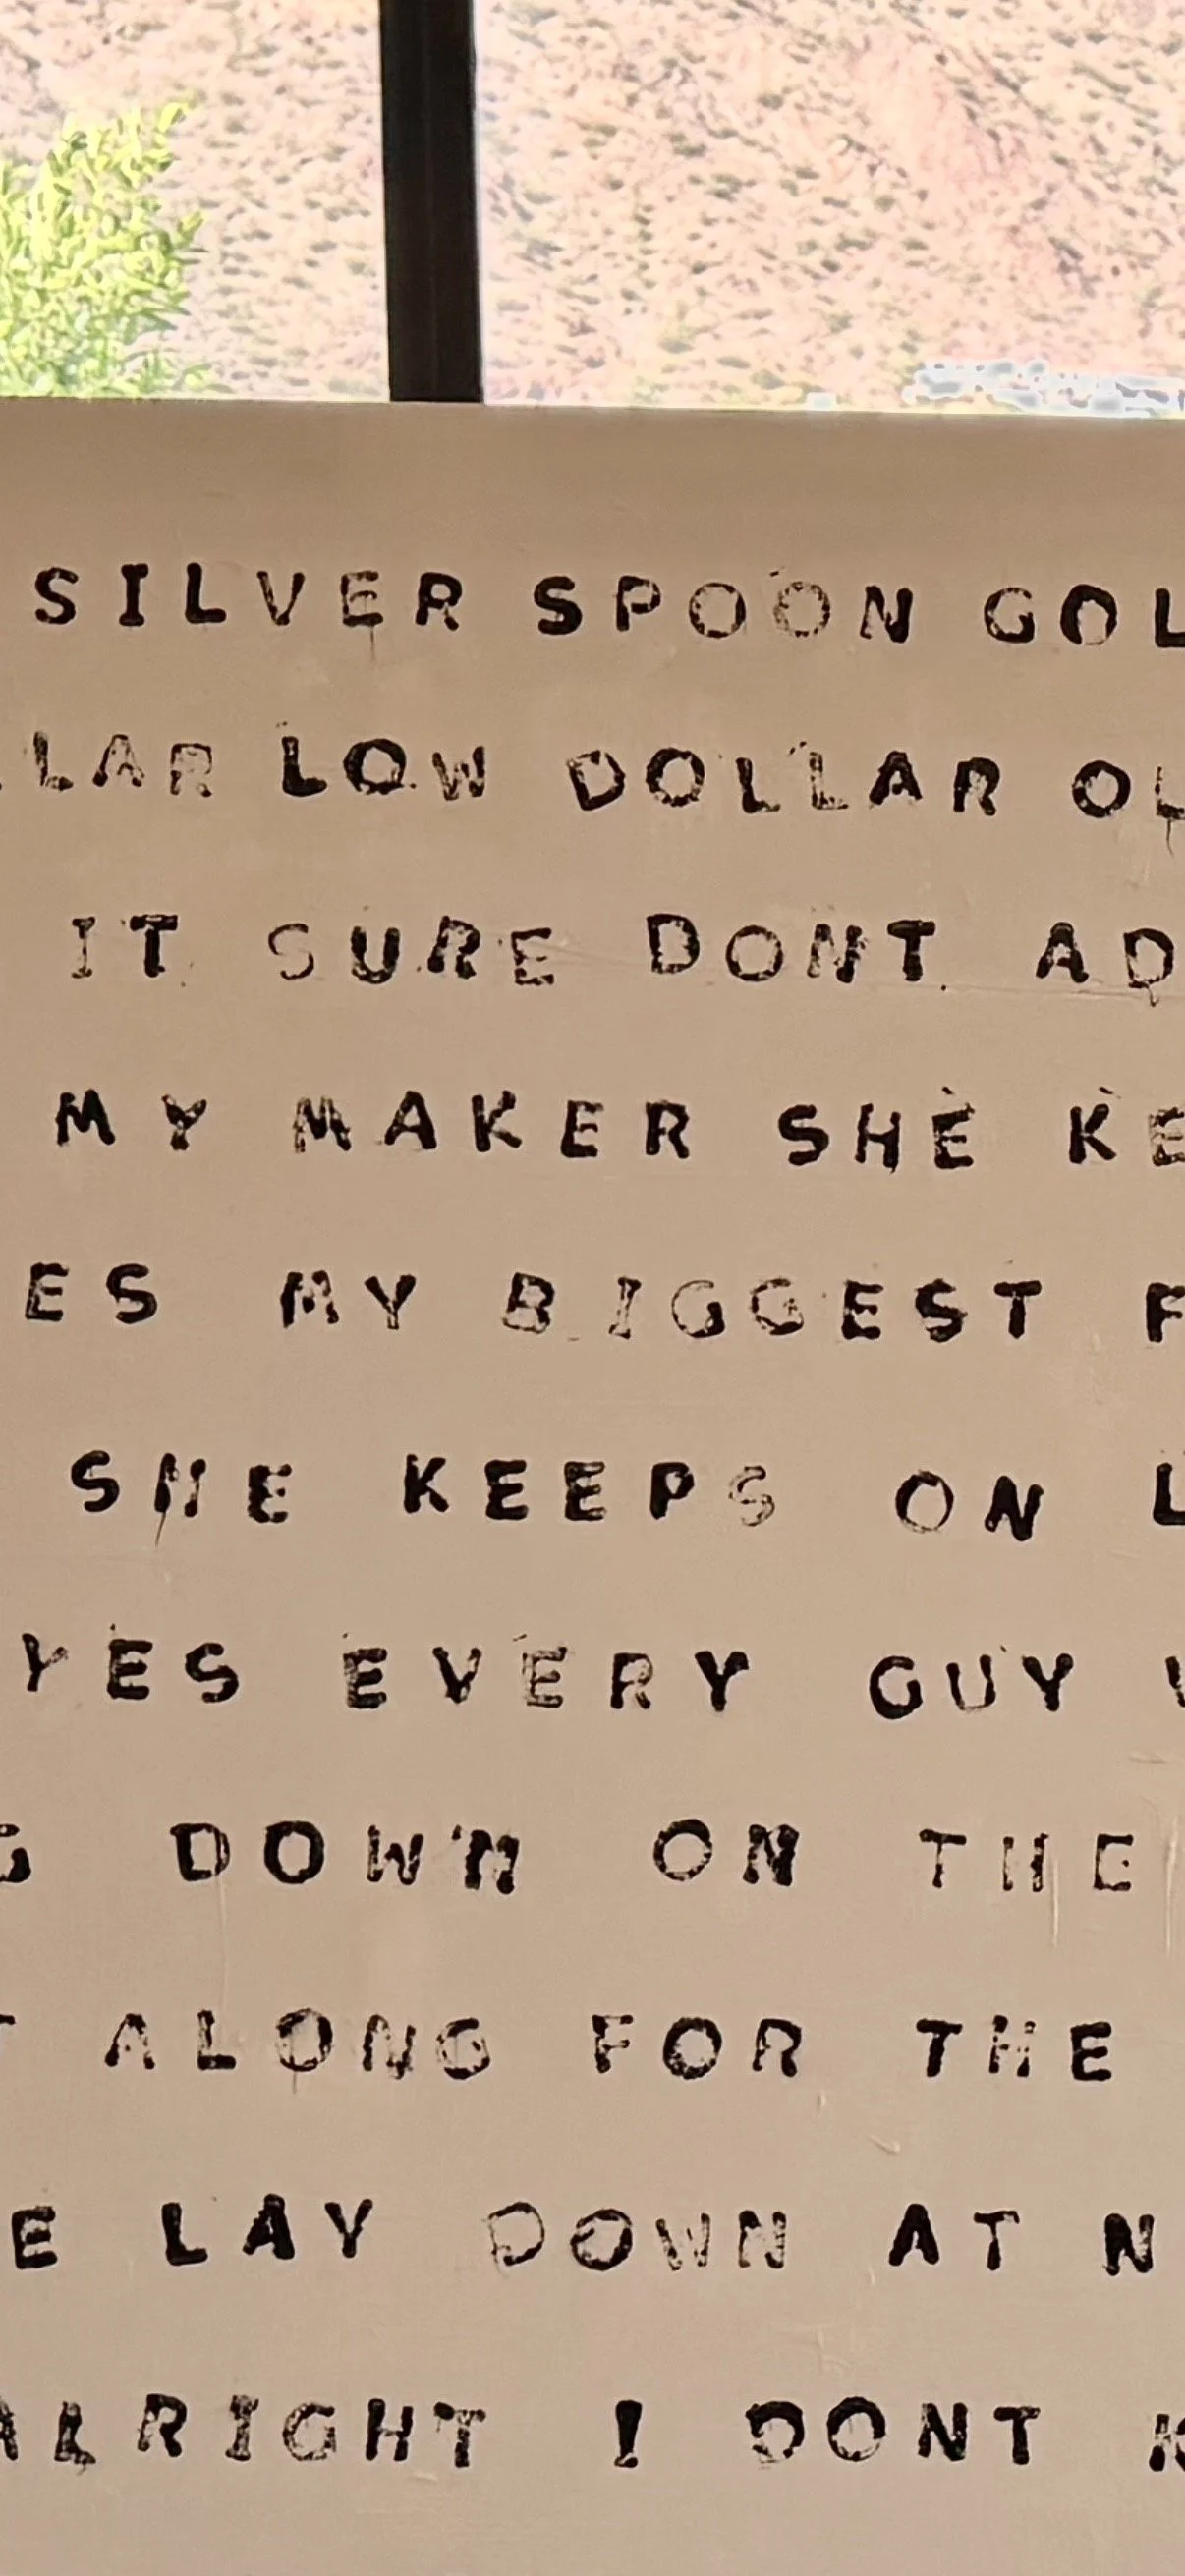 SILVER SPOON GOL
LAR LOW DOLLAR OL
IT SURE DONT AD
MY MAKER SHE KE
ES MY BIGGEST F
SHE KEEPS ON L
YES EVERY GUY
G DOWN ON THE
ALONG FOR THE
E LAY DOWN AT N
ALRIGHT I DONT K